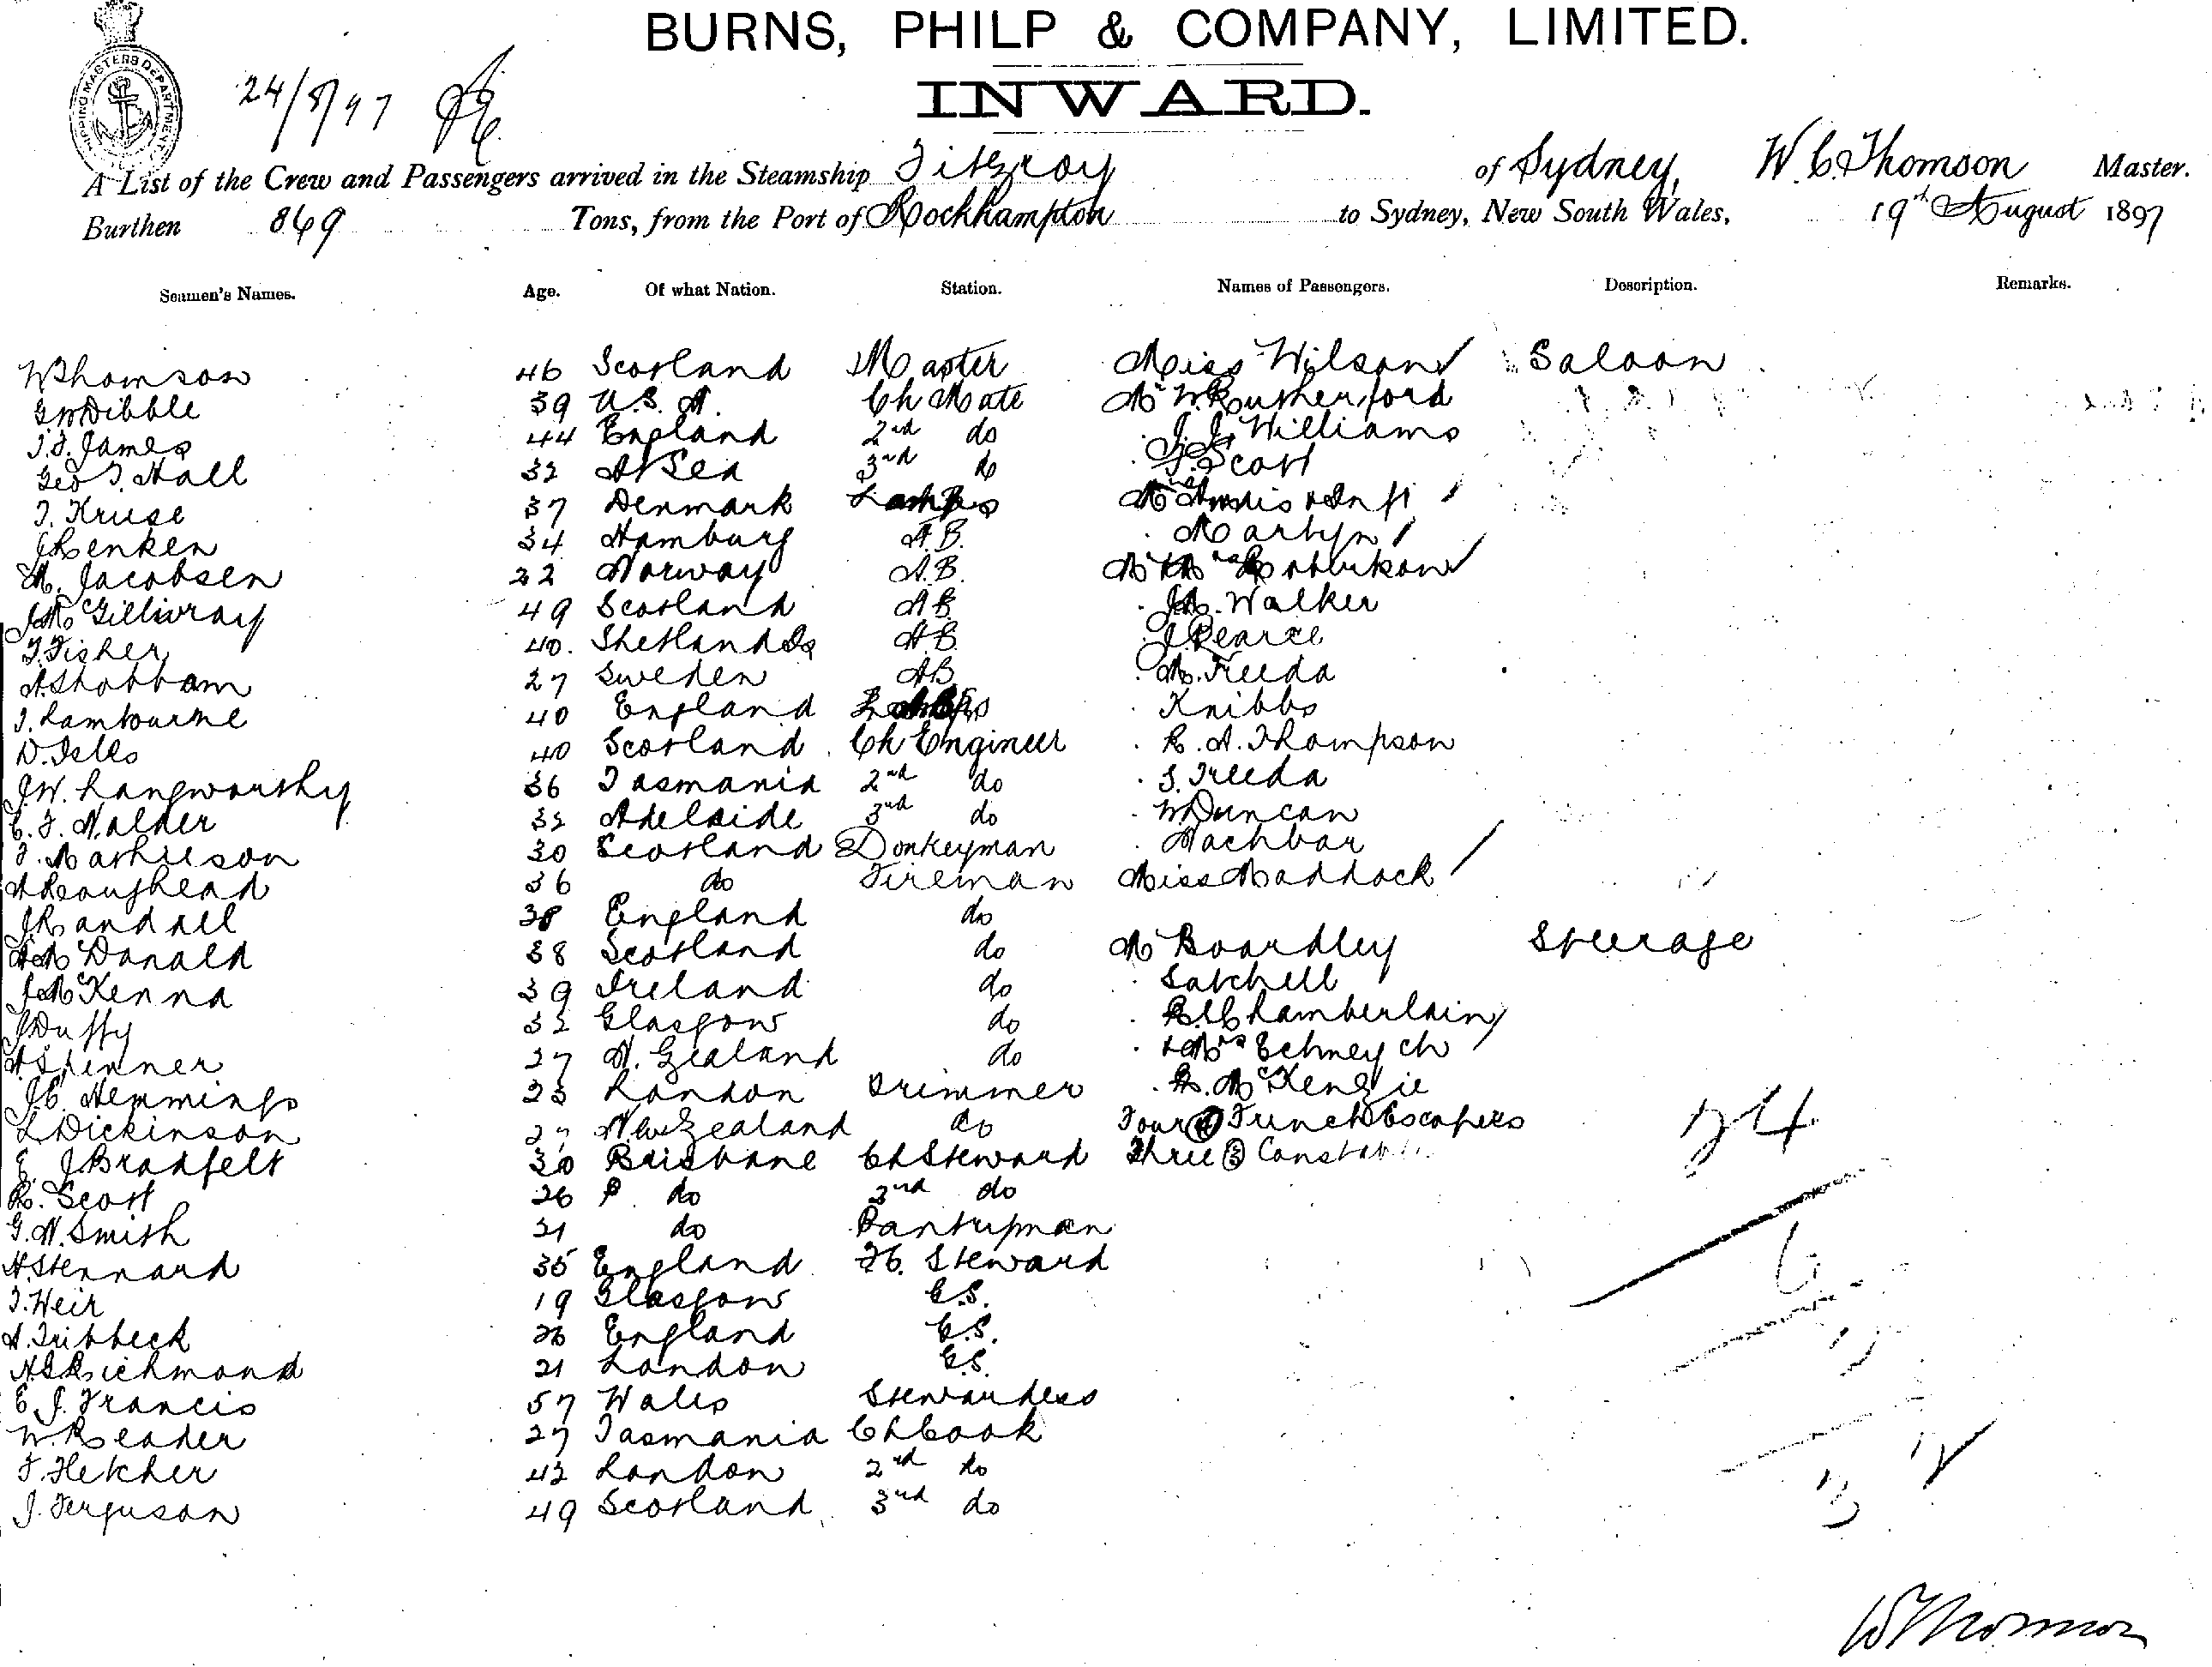 BURNS, PHILP & COMPANY, LIMITED.
INWARD.
SHIPPING MASTERS DEPARTMENT
24/8/97
A List of the Crew and Passengers arrived in the Steamship Fitzroy of Sydney, W. C. Thomson Master.
Burthen 869 Tons, from the Port of Rockhampton to Sydney, New South Wales, 19th August 1897
Seamen's Names. Age. Of what Nation. Station. Names of Passengers. Description. Remarks.
W Thomson 46 Scotland Master Miss Wilson Saloon
G W Dibble 39 U.S.A. Ch Mate Mr W Rutherford
T. J. James 44 England 2nd do J. J. Williams
Geo T. Hall 32 At Sea 3rd do Scott
J. Kruse 37 Denmark Lamps Mrs & Inft
J Renken 34 Hamburg A.B. Martyn
M. Jacobsen 22 Norway A.B. Mr & Mrs Robertson
J McGillivray 49 Scotland A.B. Walker
J. Fisher 40. Shetland Is A.B. J Pearce
27 Sweden A.B. M. Freeda
J. Lambourne 40 England Knibbs
D. Isles 40 Scotland Ch Engineer R. A. Thompson
J. W. Langworthy 36 Tasmania 2nd do S. Freeda
C. F. Nalder 32 Adelaide 3rd do W Duncan
J. Mathieson 30 Scotland Donkeyman Nachbar
A Roughead 36 do Fireman Miss Maddock
J Randall 38 England do
A McDonald 38 Scotland do Mr Boardley Steerage
J McKenna 39 Ireland do Satchell
J Duffy 32 Glasgow do R. Chamberlain
A Skinner 27 N. Zealand do & Mrs ch
J. C. Hemmings 23 London Trimmer R. McKenzie
L Dickinson 27 New Zealand do Four (4) French Escapees
E. J Bradfelt 30 Brisbane Ch Steward Three (3)
R. Scott 26 do 2nd do
G. N. Smith 21 do Pantryman
A. Stennard 35 England F.C. Steward
J. Weir 19 Glasgow C.S.
A. Tribbeck 26 England C.S.
A S Richmond 21 London C.S.
E. J. Francis 57 Wales Stewardess
W. Reader 27 Tasmania Ch Cook
F. Fletcher 42 London 2nd do
J. Ferguson 49 Scotland 3rd do
24
W Thomson